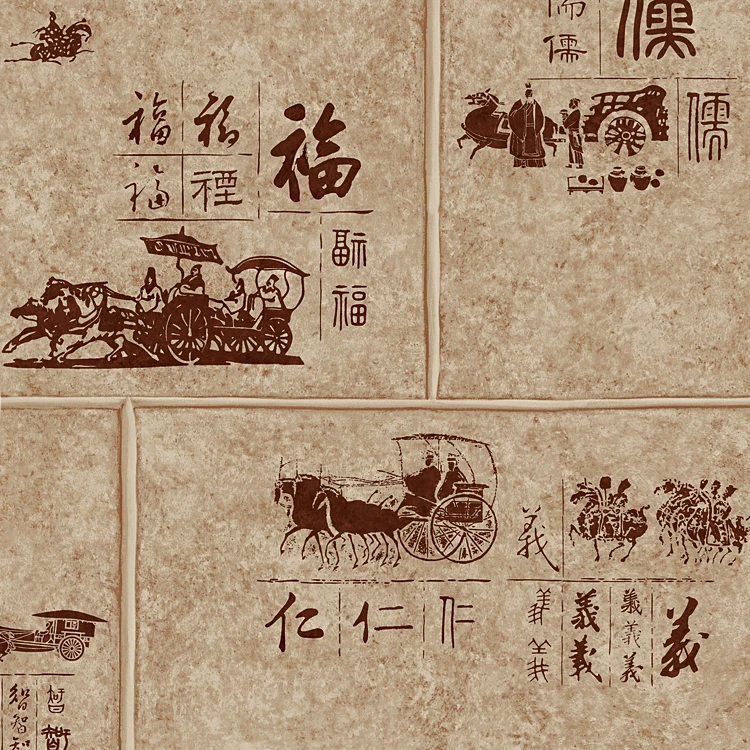 儒
儒
儒
儒
福 福 福
福 禋
福
福
仁 仁 仁
義
義 義 義 義
義 義
義
智 智
智 智
知